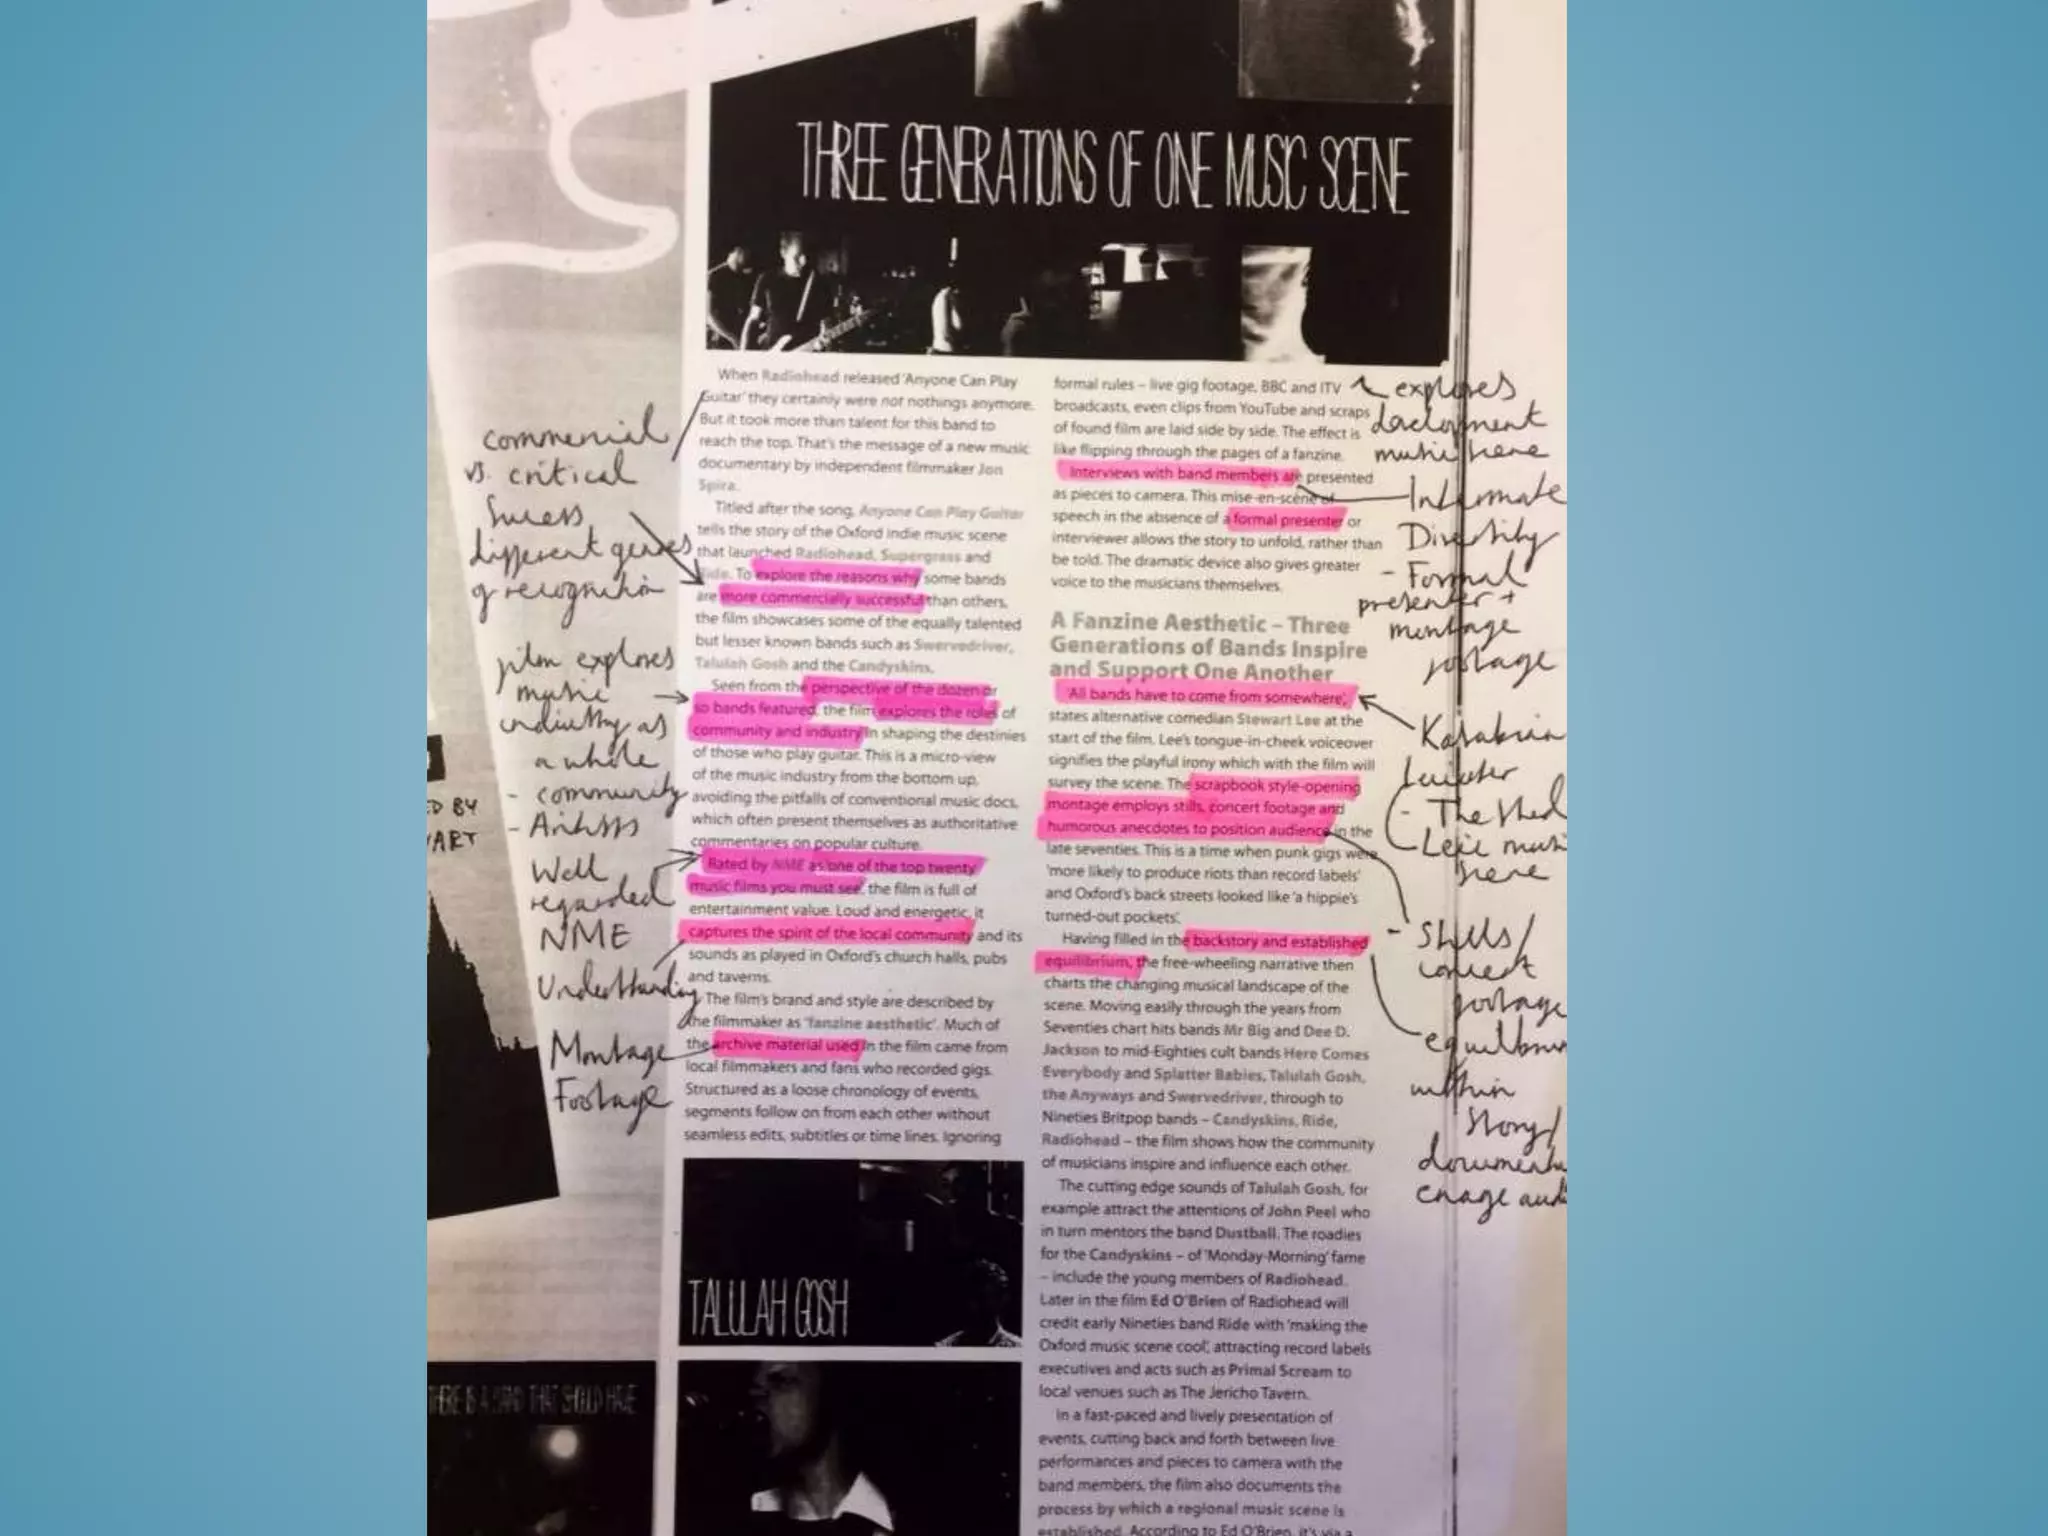 THREE GENERATIONS OF ONE MUSIC SCENE
When Radiohead released 'Anyone Can Play
Guitar' they certainly were not nothings anymore.
But it took more than talent for this band to
reach the top. That's the message of a new music
documentary by independent filmmaker Jon
Spira.
Titled after the song, Anyone Can Play Guitar
tells the story of the Oxford indie music scene
that launched Radiohead, Supergrass and
Ride. To explore the reasons why some bands
are more commercially successful than others,
the film showcases some of the equally talented
but lesser known bands such as Swervedriver,
Talulah Gosh and the Candyskins.
Seen from the perspective of the dozen or
so bands featured, the film explores the roles of
community and industry in shaping the destinies
of those who play guitar. This is a micro-view
of the music industry from the bottom up,
avoiding the pitfalls of conventional music docs,
which often present themselves as authoritative
commentaries on popular culture.
Rated by NME as 'one of the top twenty
music films you must see', the film is full of
entertainment value. Loud and energetic, it
captures the spirit of the local community and its
sounds as played in Oxford's church halls, pubs
and taverns.
The film's brand and style are described by
the filmmaker as 'fanzine aesthetic'. Much of
the archive material used in the film came from
local filmmakers and fans who recorded gigs.
Structured as a loose chronology of events,
segments follow on from each other without
seamless edits, subtitles or time lines. Ignoring
formal rules – live gig footage, BBC and ITV
broadcasts, even clips from YouTube and scraps
of found film are laid side by side. The effect is
like flipping through the pages of a fanzine.
Interviews with band members are presented
as pieces to camera. This mise-en-scène of
speech in the absence of a formal presenter or
interviewer allows the story to unfold, rather than
be told. The dramatic device also gives greater
voice to the musicians themselves.
A Fanzine Aesthetic – Three
Generations of Bands Inspire
and Support One Another
'All bands have to come from somewhere',
states alternative comedian Stewart Lee at the
start of the film. Lee's tongue-in-cheek voiceover
signifies the playful irony which with the film will
survey the scene. The scrapbook style-opening
montage employs stills, concert footage and
humorous anecdotes to position audience in the
late seventies. This is a time when punk gigs were
'more likely to produce riots than record labels'
and Oxford's back streets looked like 'a hippie's
turned-out pockets'.
Having filled in the backstory and established
equilibrium, the free-wheeling narrative then
charts the changing musical landscape of the
scene. Moving easily through the years from
Seventies chart hits bands Mr Big and Dee D.
Jackson to mid-Eighties cult bands Here Comes
Everybody and Splatter Babies, Talulah Gosh,
the Anyways and Swervedriver, through to
Nineties Britpop bands – Candyskins, Ride,
Radiohead – the film shows how the community
of musicians inspire and influence each other.
The cutting edge sounds of Talulah Gosh, for
example attract the attentions of John Peel who
in turn mentors the band Dustball. The roadies
for the Candyskins – of 'Monday-Morning' fame
– include the young members of Radiohead.
Later in the film Ed O'Brien of Radiohead will
credit early Nineties band Ride with 'making the
Oxford music scene cool', attracting record labels
executives and acts such as Primal Scream to
local venues such as The Jericho Tavern.
In a fast-paced and lively presentation of
events, cutting back and forth between live
performances and pieces to camera with the
band members, the film also documents the
process by which a regional music scene is
established. According to Ed O'Brien, it's via a
commercial
vs. critical
Success
different genres
of recognition
film explores
music
industry as
a whole
- community
- Artists
Well
regarded
NME
Understanding
Montage
Footage
explores
music scene
Diversity
- Formal
presenter +
montage
footage
Kasabian
- The Shed
music
scene
- Stills/
concert
footage
within
story/
TALULAH GOSH
THERE IS A BAND THAT SHOULD HAVE
ED BY